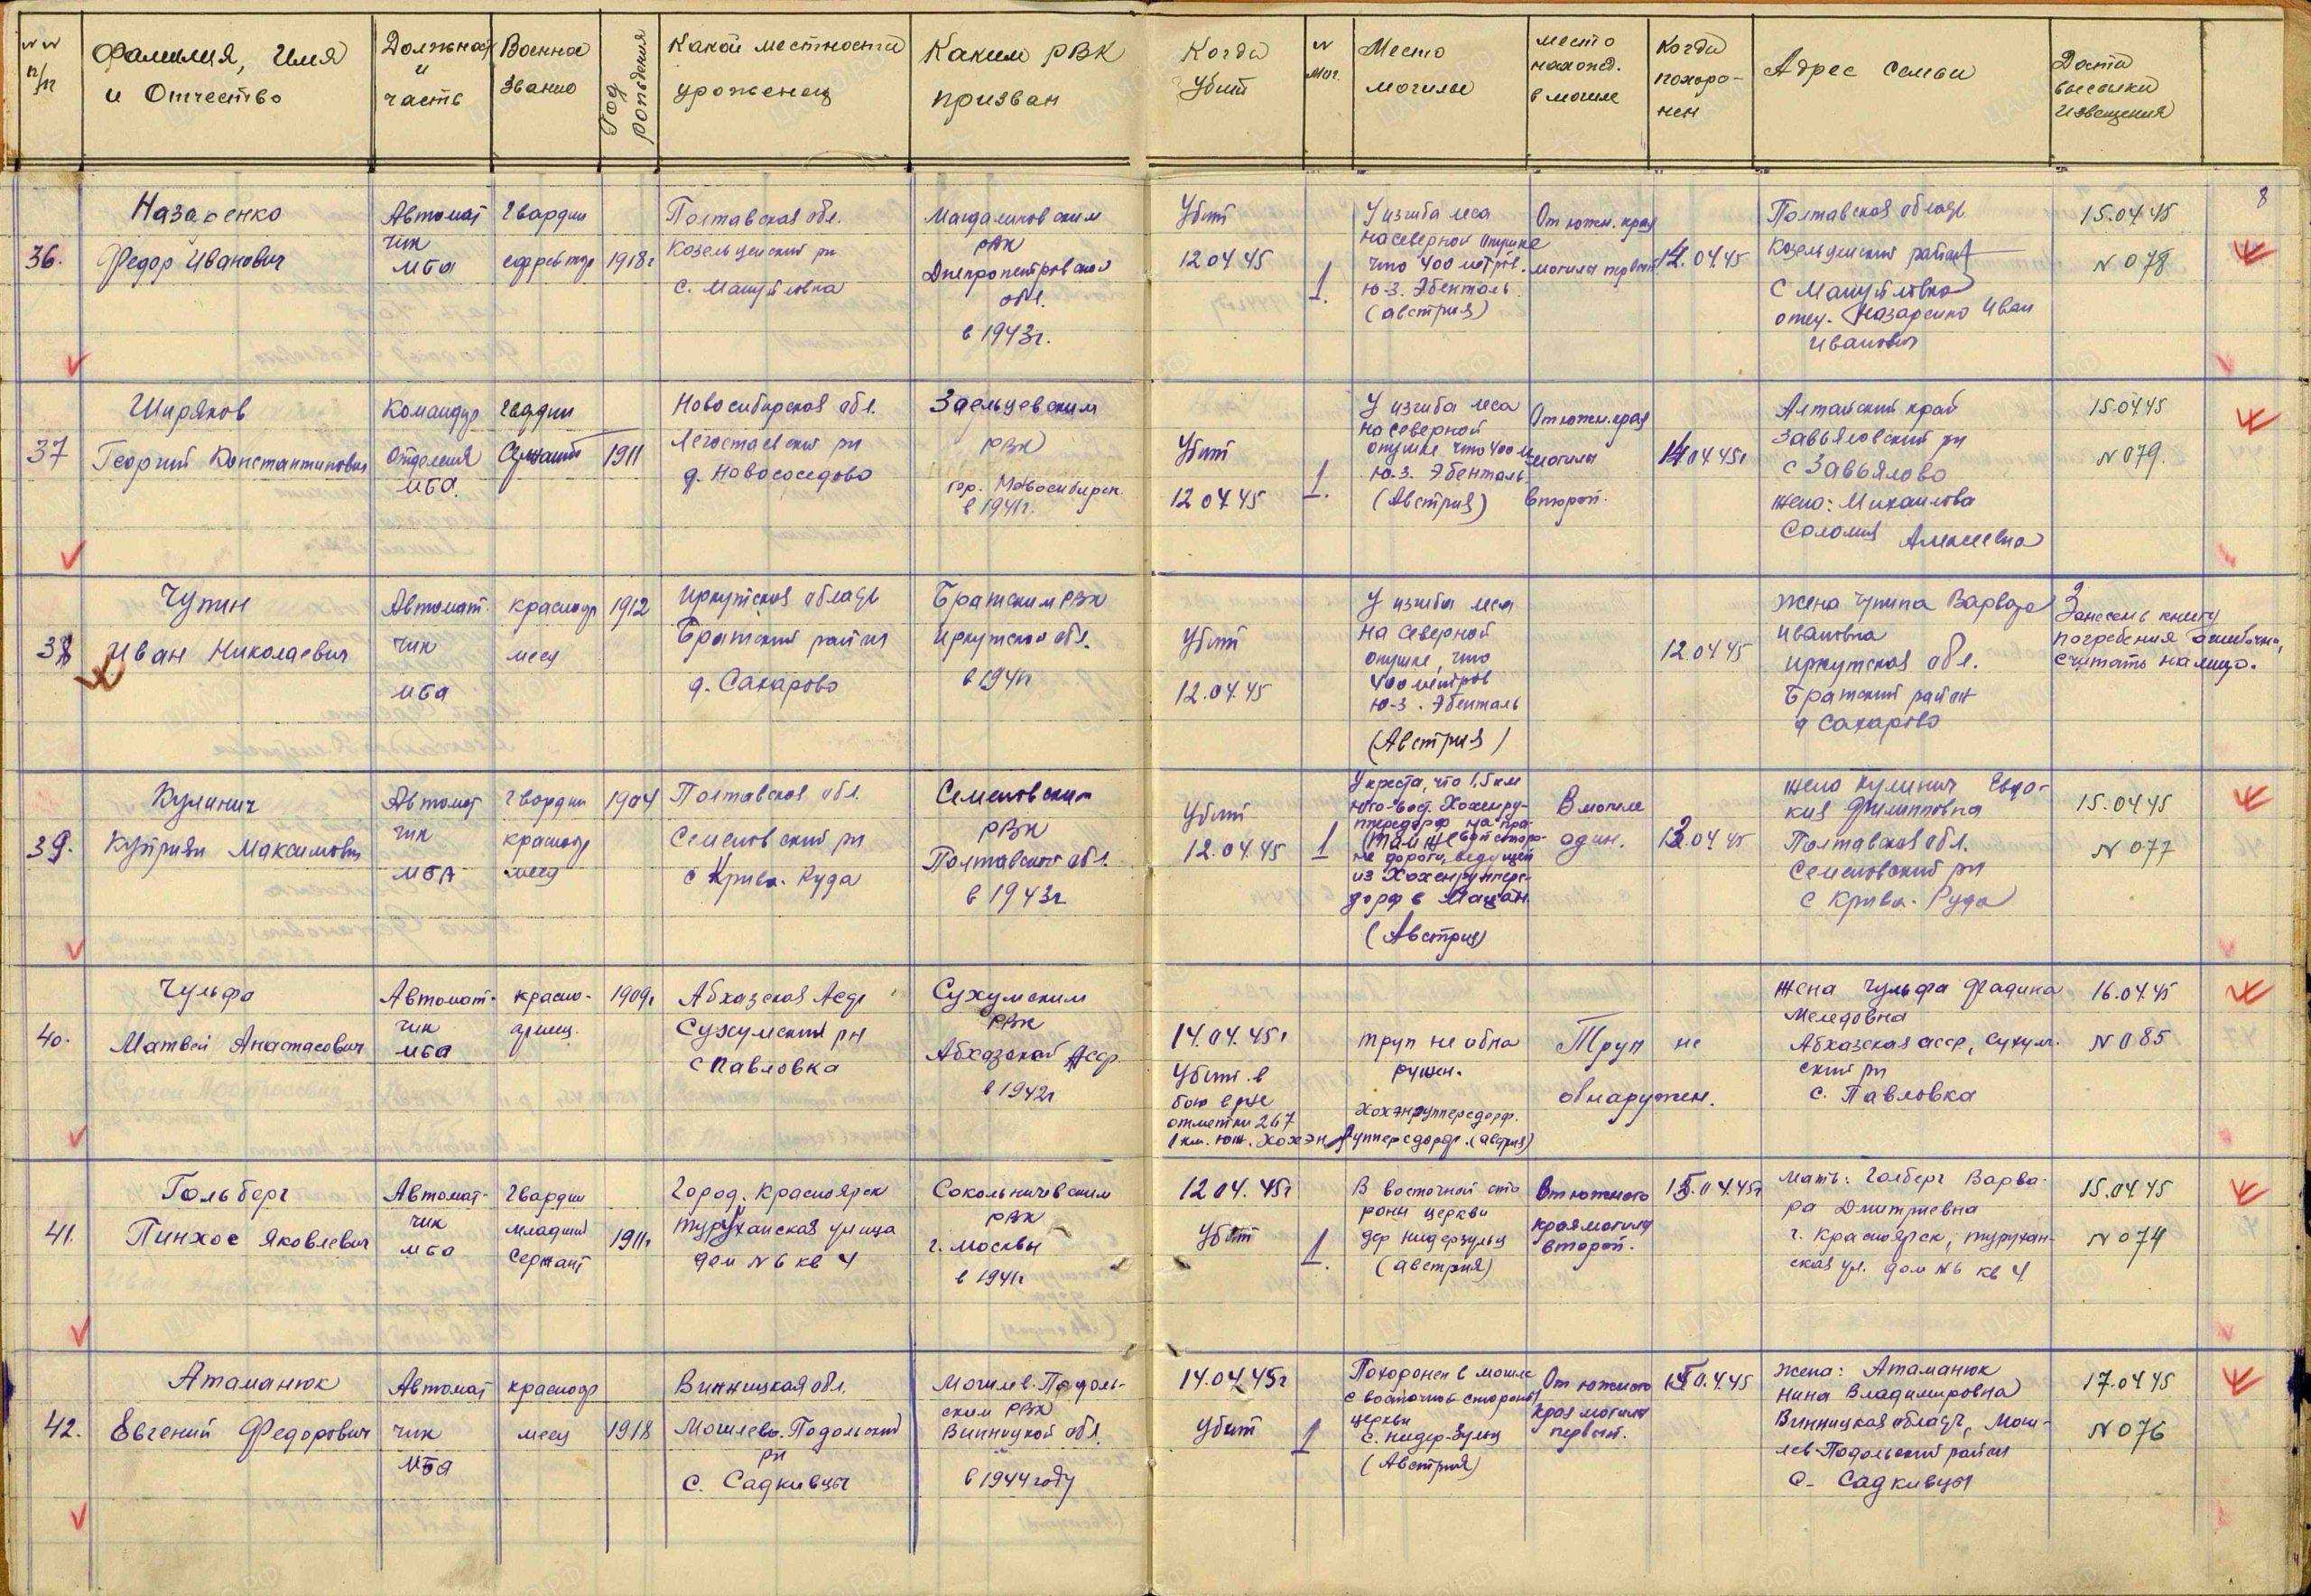 N N п/п
Фамилия, Имя
и Отчество
Должность
и
часть
Военное
звание
Год рождения
Какой местности
уроженец
Каким РВК
призван
Когда
убит
N
мог.
Место
могилы
место
нахожд.
в могиле
Когда
похоро-
нен
Адрес семьи
Дата
высылки
извещения
8
36.
Назаренко
Федор Иванович
Автомат
чик
МБА
Гвардии
ефрейтор
1918г
Полтавская обл.
Козельцский рн
с. Мануйловка
Магдалиновским
РВК
Днепропетровской
обл.
в 1943г.
Убит
12 04 45
1.
У изгиба леса
на северной опушке
что 400 метров.
ю-з. Эбенталь
(австрия)
От южн. края
могилы первый
14.04.45
Полтавская область
Козельцский район
с Мануйловка
отец - Назаренко Иван
Иванович
15.04.45
N 078
37
Ширяков
Георгий Константинович
Командир
Отделения
МБА.
Гвардии
Сержант
1911
Новосибирская обл.
Легостаевский рн
д. Новососедово
Заельцевским
РВК
гор. Новосибирск.
в 1941г.
Убит
12 04.45
1.
У изгиба леса
на северной
опушке что 400 м
ю-з. Эбенталь
(Австрия)
От южн. края
могилы
второй.
14 04 45г
Алтайский край
Завьяловский рн
с Завьялово
жена: Михаилова
Соломия Алексеевна
15.04.45
N 079.
38
Чупин
Иван Николаевич
Автомат-
чик
МБА
красноар
меец
1912
Иркутская область
Братский район
д. Сахарово
Братским РВК
Иркутской обл.
в 1941г
Убит
12.04.45
У изгиба леса
на северной
опушке, что
400 метров
ю-з. Эбенталь
(Австрия)
12.04 45
жена Чупина Варвара
Ивановна
Иркутская обл.
Братский район
д Сахарово
Занесень книгу
погребения ошибочно,
считать на лицо.
39.
Кулинич
Куприян Максимович
Автомат
чик
МБА
Гвардии
красноар
меец
1904
Полтавская обл.
Семеновский рн
с Крива-Руда
Семеновским
РВК
Полтавской обл.
в 1943г
Убит
12.04.45
1
У креста, что 1,5 км
юго-вост. Хохенру-
ппердорф на пра-
вой сторо-
не дороги, ведущей
из Хохенруппер-
дорф в Мацен.
(Австрия)
В могиле
один.
13.04 45
жена Кулинич Евдо-
кия Филипповна
Полтавская обл.
Семеновский рн
с Крива-Руда
15.04.45
N 077
40.
Чульфа
Матвей Анастасович
Автомат-
чик
МБА
красно-
армеец.
1909г
Абхазская Асср
Сухумский рн
с Павловка
Сухумским
РВК
Абхазской Асср.
в 1942г
14.04.45г
Убит в
бою в р-не
отметки 267
1 км. юж. Хохэн руппердорф. (австрия)
труп не обна
ружен.
Хохэнруппередорф.
Труп не
обнаружен.
жена Чульфа Фадина
Меледовна
Абхазская асср, Сухум-
ский рн
с. Павловка
16.04.45
N 085
41.
Гольберг
Пинхос Яковлевич
Автомат-
чик
МБА
Гвардии
младший
Сержант
1911г
Город. Красноярск
туруханская улица
дом N 6 кв 4
Сокольничевским
РВК
г. Москвы
в 1941г
12 04. 45г
Убит
1.
В восточной сто
роны церкви
дер Нидерзульц
(австрия)
От южного
края могилы
второй.
15.04.45г
мать: Голберг Варва-
ра Дмитриевна
г. Красноярск, турухан-
ская ул. дом N6 кв 4
15.04.45
N 074
42.
Атаманюк
Евгений Федорович
Автомат
чик
МБА
красноар
меец
1918
Винницкая обл.
Могилево-Подольский
рн
с. Садкивцы
Могилев-Подоль-
ским РВК
Винницкой обл.
в 1944 году
14.04.45г
Убит
1
Похоронен в могиле
с восточной стороны
церкви
с. Нидер-Зульц
(Австрия)
От южного
края могилы
первый.
15.04.45
жена: Атаманюк
Нина Владимировна
Винницкая область, Моги-
лев-Подольский район
с- Садкивцы
17.04 45
N 076